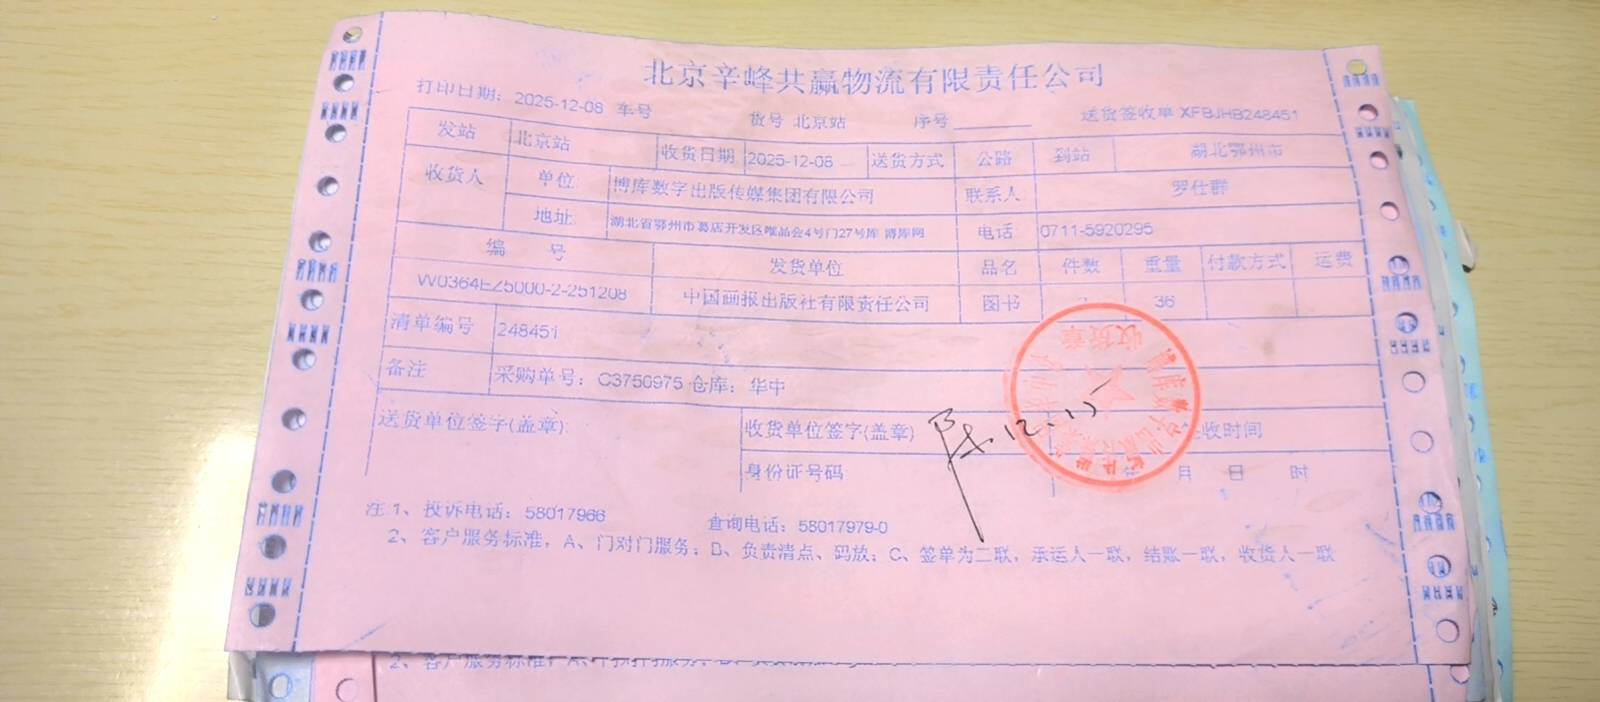 北京辛峰共赢物流有限责任公司
打印日期：2025-12-08 车号 货号 北京站 序号 送货签收单 XFBJHB248451
发站 北京站 收货日期 2025-12-08 送货方式 公路 到站 湖北鄂州市
收货人 单位: 博库数字出版传媒集团有限公司 联系人 罗仕群
地址 湖北省鄂州市葛店开发区唯品会4号门27号库 博库网 电话 0711-5920295
编 号 发货单位 品名 件数 重量 付款方式 运费
W0364EZ5000-2-251208 中国画报出版社有限责任公司 图书 36
清单编号 248451
备注 采购单号：C3750975 仓库：华中
送货单位签字(盖章): 收货单位签字(盖章) 12.11 收时间
身份证号码 月 日 时
收货章
注 1、投诉电话：58017966 查询电话：58017979-0
2、客户服务标准，A、门对门服务；B、负责清点、码放；C、签单为二联，承运人一联，结账一联，收货人一联
2、客户服务标准，A、